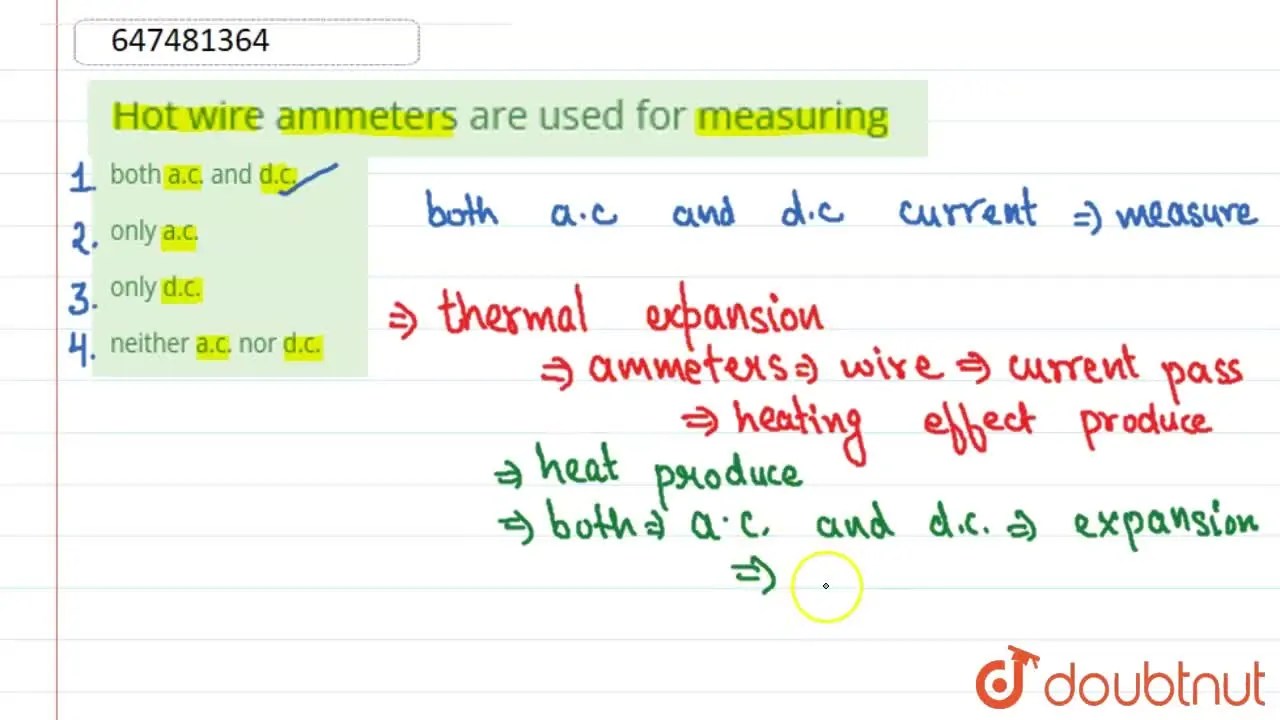 647481364
Hot wire ammeters are used for measuring
1. both a.c. and d.c.
2. only a.c.
3. only d.c.
4. neither a.c. nor d.c.
both a.c and d.c current ⇒ measure
⇒ thermal expansion
⇒ ammeters ⇒ wire ⇒ current pass
⇒ heating effect produce
⇒ heat produce
⇒ both ⇒ a.c. and d.c. ⇒ expansion
⇒
doubtnut